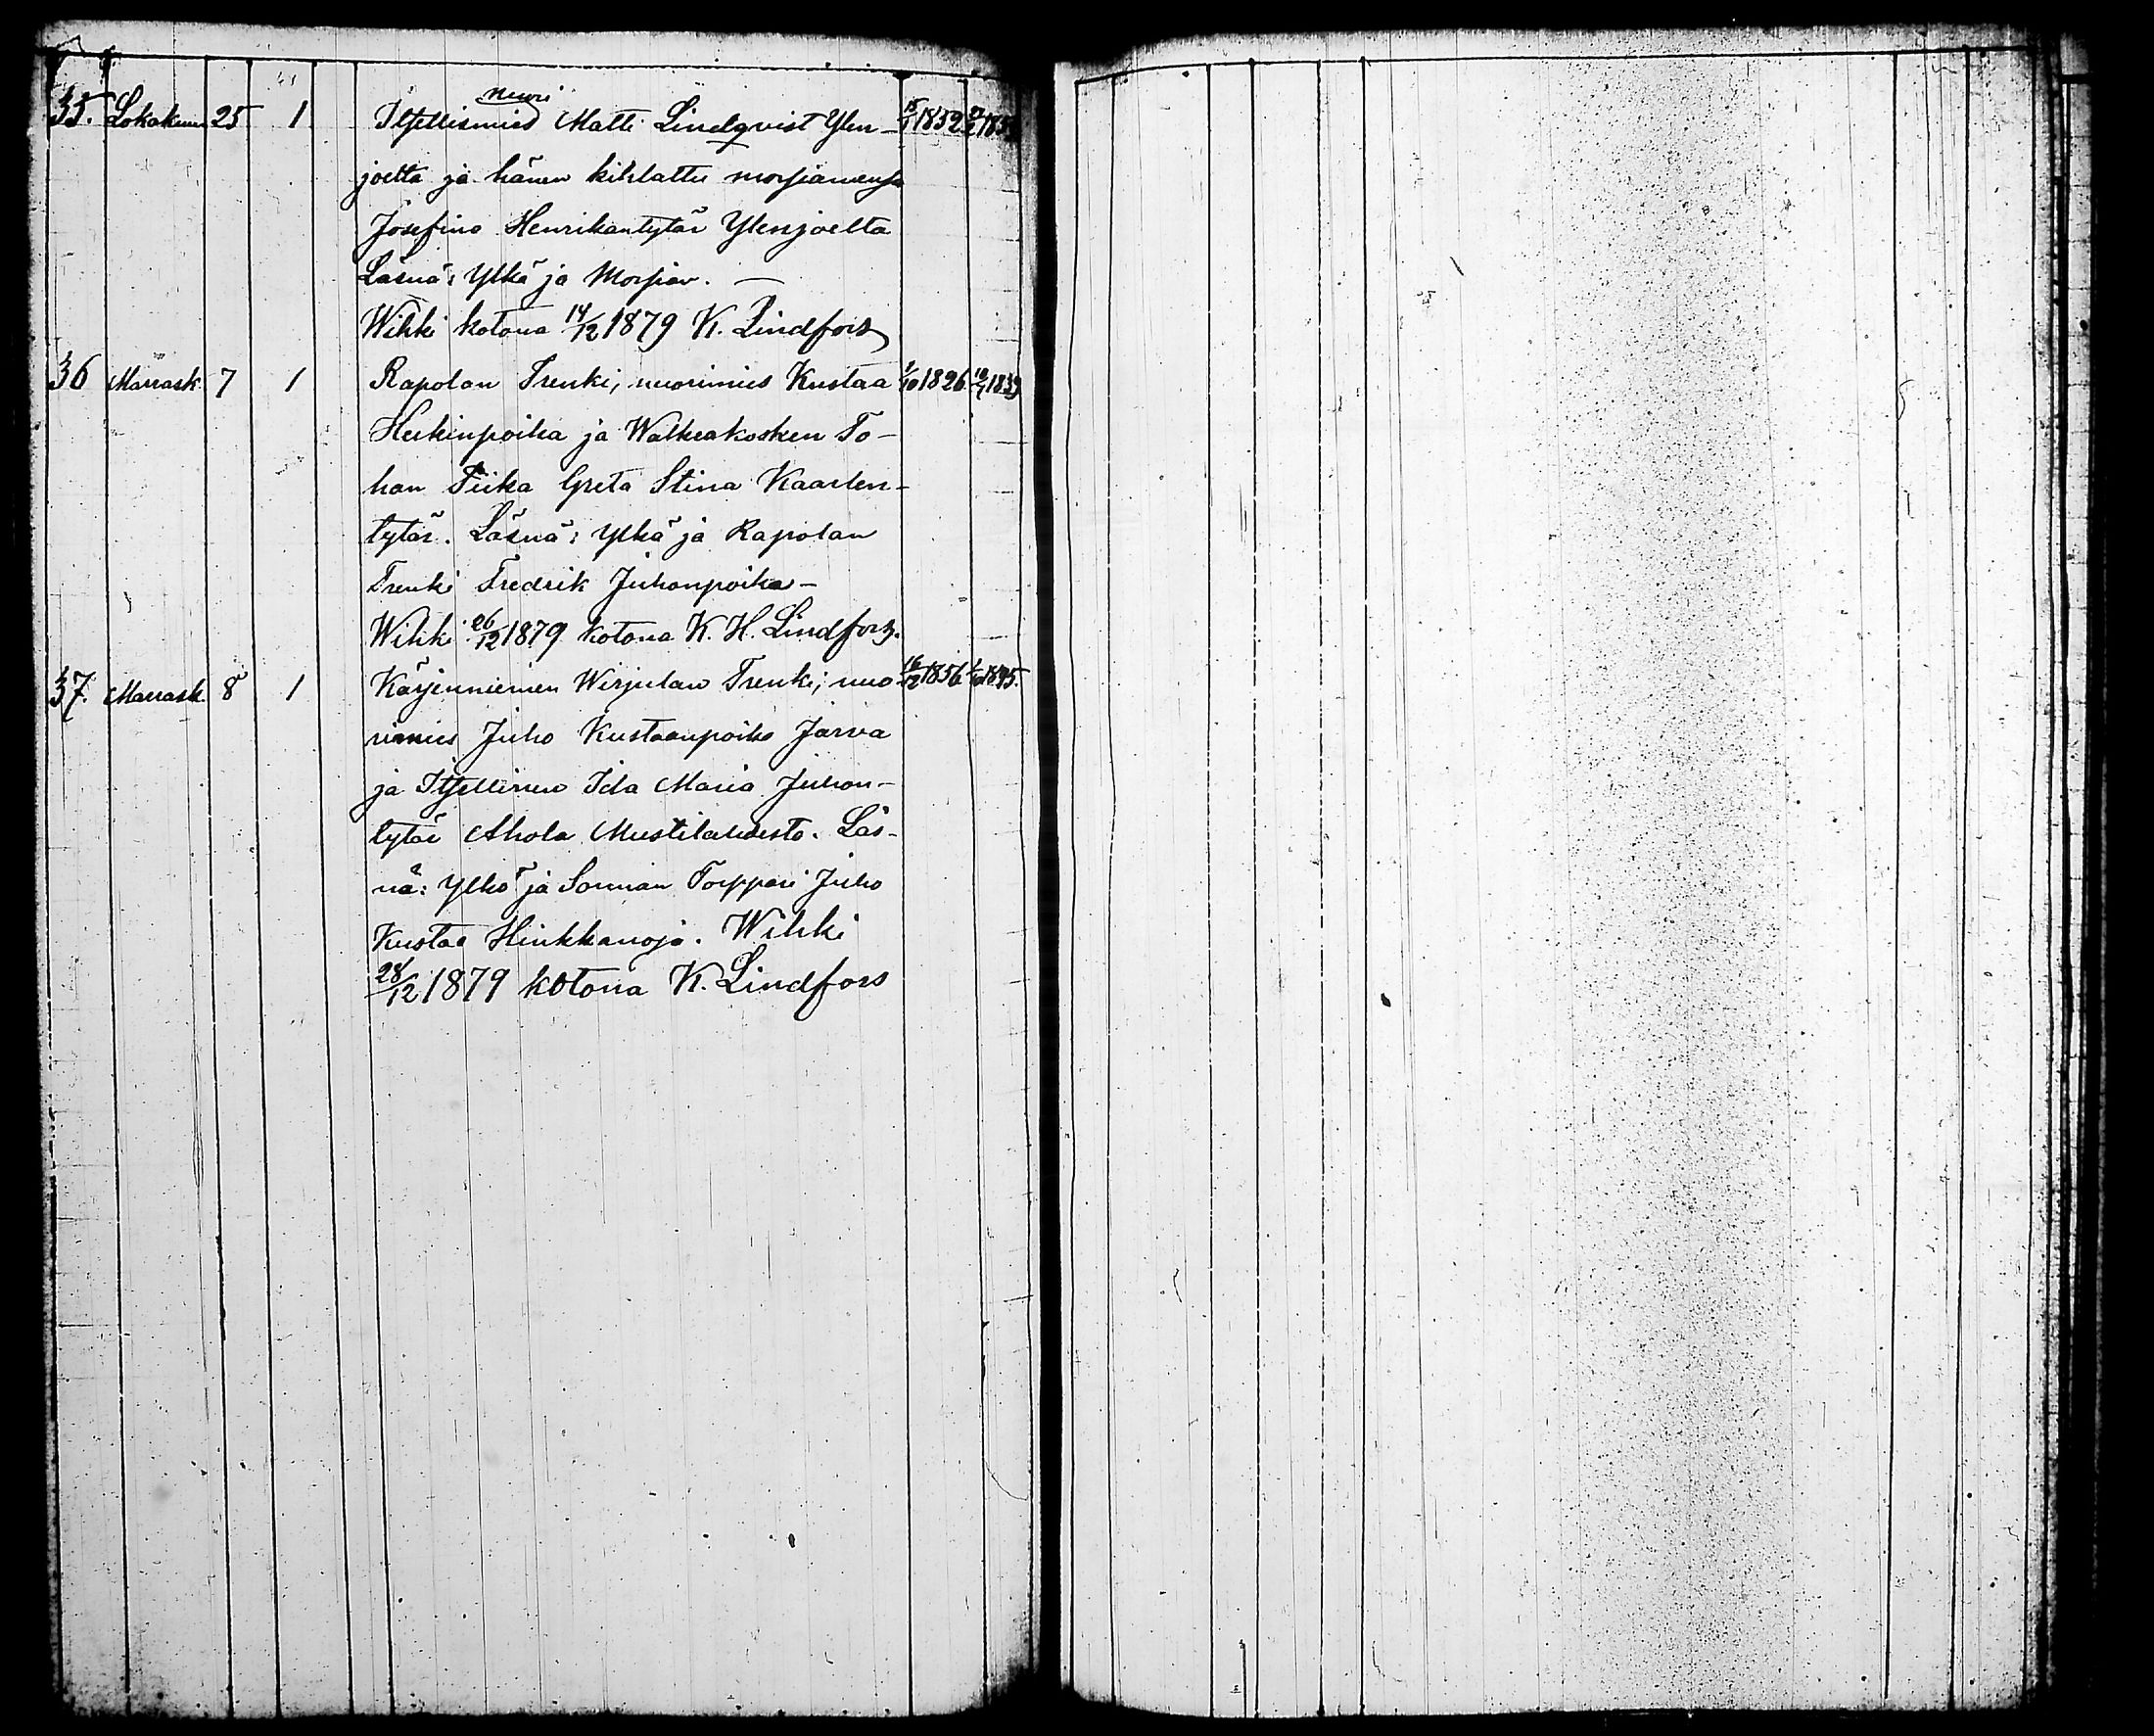 nuori
35. Lokakuun 25 1 Itsellismies Matti Lindqvist Ylen- 15/1 1852
joelta ja hänen kihlattu morsiamensa
Josefina Henrikantytär Ylenjoelta
Läsnä: Ylkä ja Morsian. —
Wihki kotona 14/12 1879 K. Lindfors
36 Marrask. 7 1 Rapolan Trenki, nuorimies Kustaa 1826 1839
Heikinpoika ja Walkeakosken To-
han Piika Greta Stina Kaarlen-
tytär. Läsnä: Ylkä ja Rapolan
Trenki Fredrik Juhonpoika —
Wihki 26/12 1879 kotona K. H. Lindfors.
37. Marrask. 8 1 Kärjenniemen Wirjulan Trenki, nuo 16/12 1856
rimies Juho Kustaanpoika Järva
ja Itsellinen Ida Maria Juhon-
tytär Ahola Mustilahdesta. Läs-
nä: Ylkä ja Sonnian Torppari Juho
Kustaa Hinkkanoja. Wihki
28/12 1879 kotona K. Lindfors